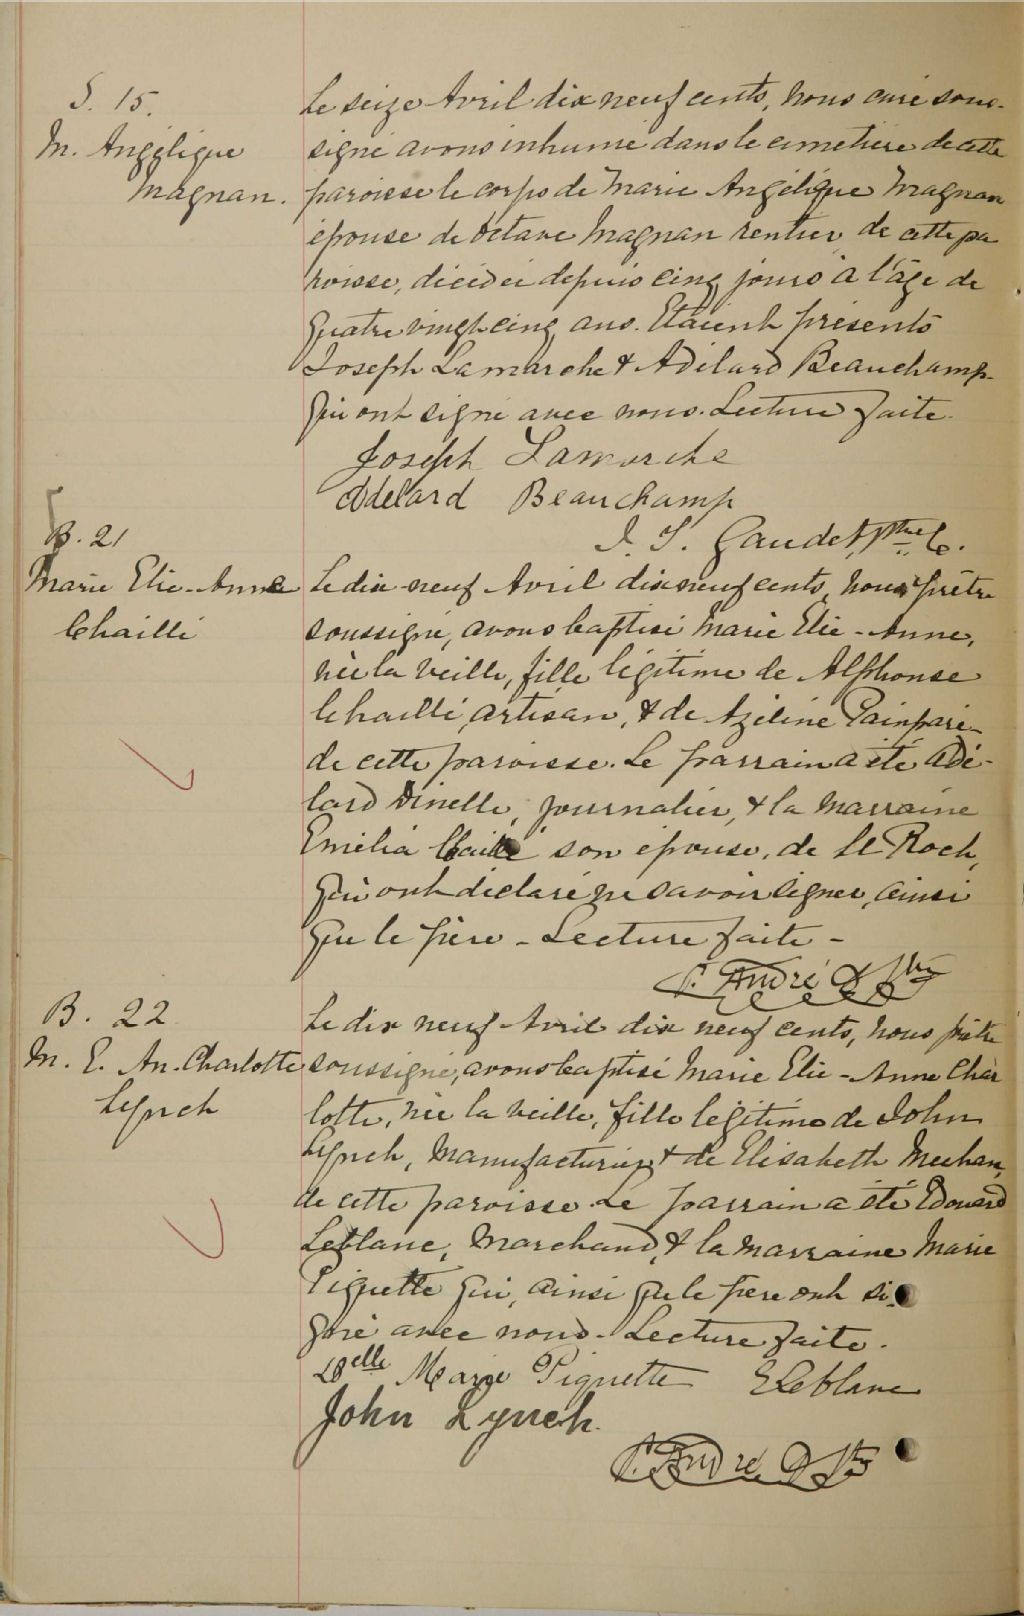 S. 15.
M. Angélique
Magnan.
Le seize Avril dix neuf cents, nous curé sous-
signé avons inhumé dans le cimetière de cette
paroisse le corps de Marie Angélique Magnan
épouse de Octave Magnan rentier, de cette pa
roisse, décédée depuis cinq jours à l'âge de
quatre vingt cinq ans. Etaient présents
Joseph Lamarche & Adélard Beauchamp
qui ont signé avec nous. Lecture faite.
Joseph Lamarche
Adelard Beauchamp
Gaudet Ptre C.
B. 21
Marie Elie-Anne
Chaillé
Le dix-neuf Avril dix neuf cents, nous prêtre
soussigné, avons baptisé Marie Elie-Anne,
née la veille, fille légitime de Alphonse
Chaillé, artisan, & de Azéline Painparé
de cette paroisse. Le parrain a été Adé-
lard Dinelle, journalier, & la marraine
Emélia Chaillé son épouse, de St Roch,
qui ont déclaré ne savoir signer, ainsi
que le père - Lecture faite -
P. André D Ptre
B. 22
M. E. An. Charlotte
Lynch
Le dix neuf Avril dix neuf cents, nous prêtre
soussigné, avons baptisé Marie Elie-Anne Char
lotte, née la veille, fille légitime de John
Lynch, Manufacturier & de Elisabeth Meehan,
de cette paroisse. Le parrain a été Edouard
Leblanc, Marchand, & la marraine Marie
Piquette qui, ainsi que le père ont si-
gné avec nous. Lecture faite.
Delle Marie Piquette E Leblanc
John Lynch.
P. André D Ptre